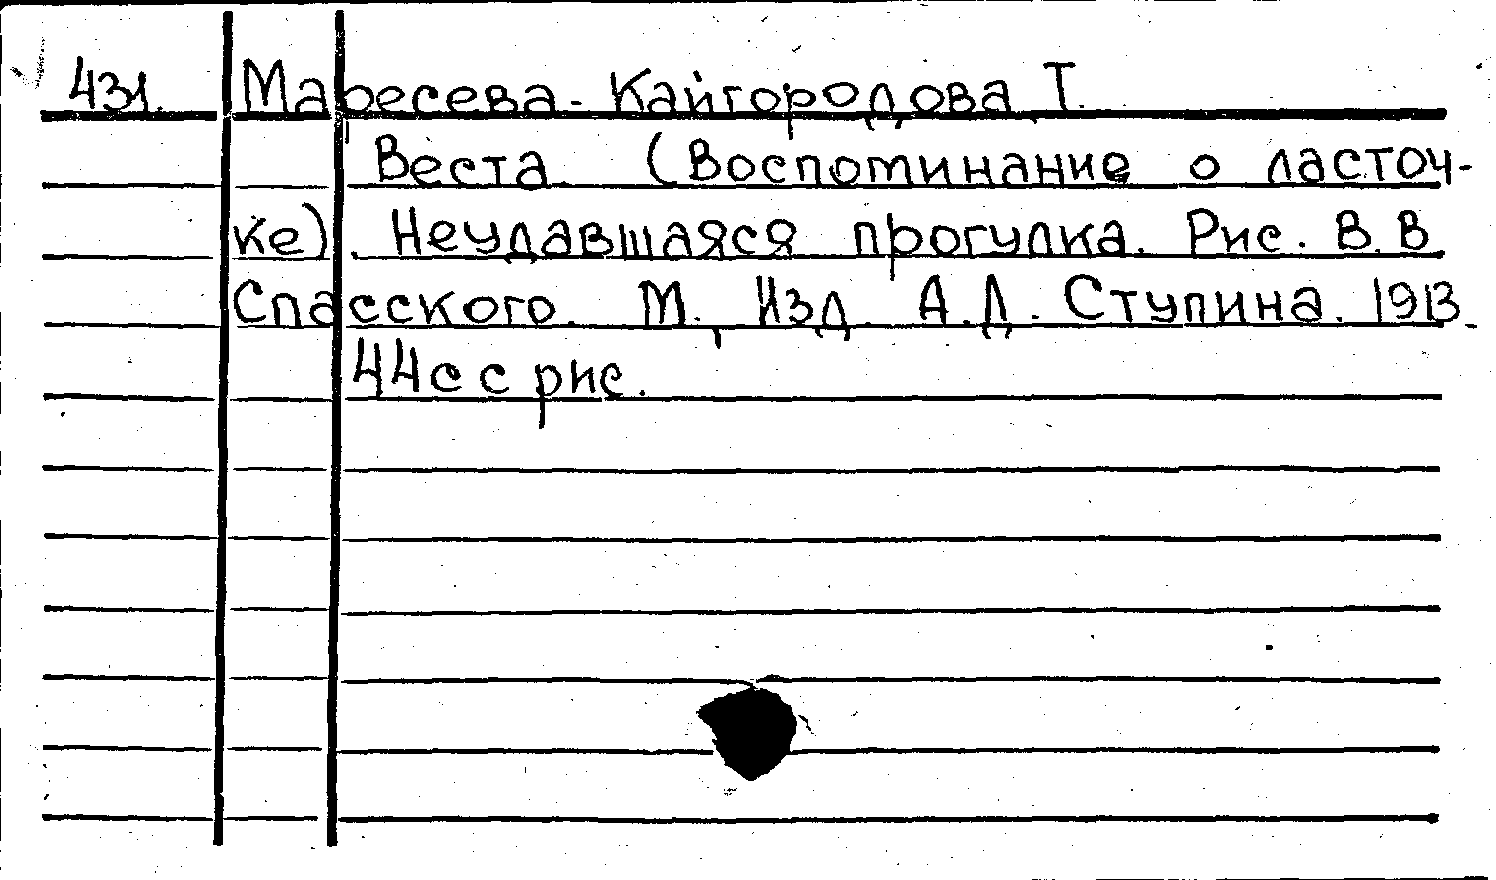 431. Маресева-Кайгородова Т.
Веста (Воспоминание о ласточ-
ке). Неудавшаяся прогулка. Рис. В.В.
Спасского. М., Изд. А.Д. Ступина. 1913.
44 с с рис.